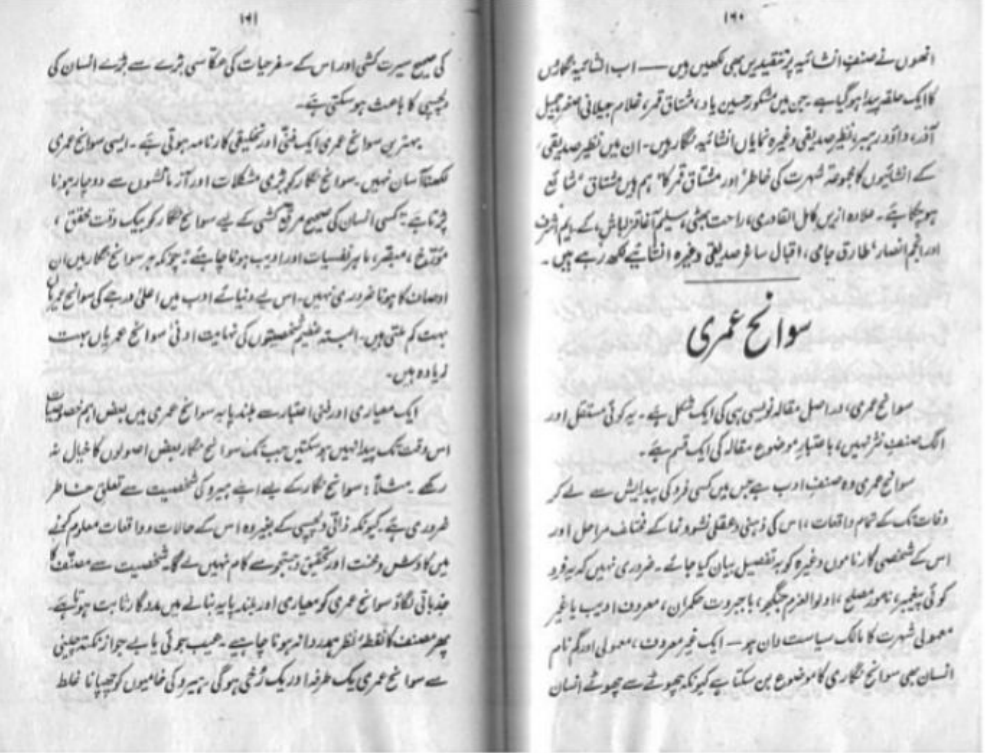 ۱۶۰
انھوں نے صنفِ انشائیہ پر تنقیدیں بھی لکھیں ہیں — اب انشائیہ نگاروں
کا ایک حلقہ پیدا ہو گیا ہے۔ جن میں مشکور حسین یاد، مشتاق قمر، غلام جیلانی اصغر جمیل
آذر، داؤد رہبر، نظیر صدیقی وغیرہ نمایاں انشائیہ نگار ہیں۔ ان میں نظیر صدیقی،
کے انشائیوں کا مجموعہ شہرت کی خاطر اور مشتاق قمر کا "ہم ہیں مشتاق" شائع
ہو چکا ہے۔ علاوہ ازیں کامل القادری، راحت بھٹی، سلیم آغا قزلباش، کے۔ ایم اشرف
اور انجم انصار، طارق جامی، اقبال ساغر صدیقی وغیرہ انشائیے لکھ رہے ہیں۔
سوانح عمری
سوانح عمری، دراصل مقالہ نویسی ہی کی ایک شکل ہے۔ یہ کوئی مستقل اور
الگ صنفِ نثر نہیں، باعتبارِ موضوع مقالہ کی ایک قسم ہے۔
سوانح عمری وہ صنفِ ادب ہے جس میں کسی فرد کی پیدایش سے لے کر
وفات تک کے تمام واقعات، اس کی ذہنی و عقلی نشوونما کے مختلف مراحل اور
اس کے شخصی کارناموں وغیرہ کو بہ تفصیل بیان کیا جائے۔ ضروری نہیں کہ یہ فرد
کوئی پیغمبر، نامور مصلح، اولوالعزم جنگجو، باجبروت حکمران، معروف ادیب یا غیر
معمولی شہرت کا مالک سیاست دان ہو — ایک غیر معروف، معمولی اور گم نام
انسان بھی سوانح نگاری کا موضوع بن سکتا ہے کیونکہ چھوٹے سے چھوٹے انسان
۱۶۱
کی صحیح سیرت کشی اور اس کے سفرِ حیات کی عکاسی بڑے سے بڑے انسان کی
دلچسپی کا باعث ہو سکتی ہے۔
بہترین سوانح عمری ایک فنی اور تخلیقی کارنامہ ہوتی ہے۔ ایسی سوانح عمری
لکھنا آسان نہیں۔ سوانح نگار کو بڑی مشکلات اور آزمائشوں سے دوچار ہونا
پڑتا ہے۔ کسی انسان کی صحیح مرقع کشی کے لیے سوانح نگار کو بیک وقت محقق،
مؤرخ، مبصر، ماہرِ نفسیات اور ادیب ہونا چاہئے، چونکہ ہر سوانح نگار میں ان
اوصاف کا ہونا ضروری نہیں۔ اس لیے دنیائے ادب میں اعلیٰ درجے کی سوانح عمریاں
بہت کم ملتی ہیں۔ البتہ عظیم شخصیتوں کی نہایت ادنیٰ سوانح عمریاں بہت
زیادہ ہیں۔
ایک معیاری اور فنی اعتبار سے بلند پایہ سوانح عمری میں بعض اہم خصوصیات
اس وقت تک پیدا نہیں ہو سکتیں جب تک سوانح نگار بعض اصولوں کا خیال نہ
رکھے۔ مثلاً: سوانح نگار کے لیے اپنے ہیرو کی شخصیت سے تعلقِ خاطر
ضروری ہے۔ کیونکہ ذاتی دلچسپی کے بغیر وہ اس کے حالات و واقعات معلوم کرنے
میں کاوش و محنت اور تحقیق و جستجو سے کام نہیں لے گا۔ شخصیت سے مصنف کا
جذباتی لگاؤ سوانح عمری کو معیاری اور بلند پایہ بنانے میں مددگار ثابت ہوتا ہے۔
پھر مصنف کا نقطۂ نظر ہمدردانہ ہونا چاہے۔ عیب جوئی یا بے جواز نکتہ چینی
سے سوانح عمری یک طرفہ اور یک رُخی ہو گی، ہیرو کی خامیوں کو چھپانا غلط